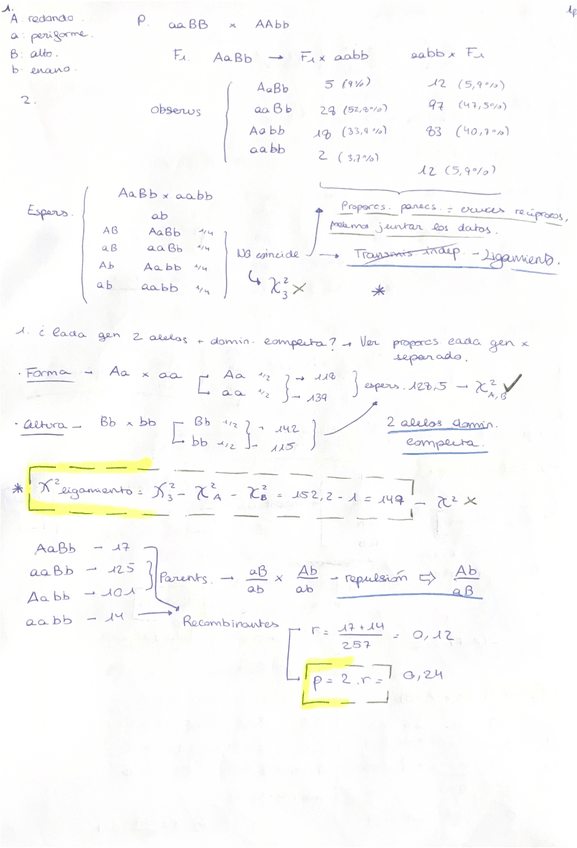 1.
1p
A redondo.
P. aaBB × AAbb
a: periforme.
B: alto.
F₁. AaBb → F₁ × aabb aabb × F₁
b: enano.
2.
AaBb 5 (9%) 12 (5,9%)
observs aaBb 28 (52,8%) 97 (47,5%)
Aabb 18 (33,9%) 83 (40,7%)
aabb 2 (3,7%) 12 (5,9%)
AaBb × aabb
Espers. ab
AB AaBb 1/4
aB aaBb 1/4
Ab Aabb 1/4
ab aabb 1/4
Propores. parecs. = cruces recíprocos,
podemos juntar los datos.
No coincide → Transmis indep - Ligamiento.
↳ χ²₃ ×
*
1. ¿ Cada gen 2 alelos + domin. completa? → Ver propores cada gen x
separado.
· Forma → Aa × aa Aa 1/2 → 118
aa 1/2 → 139
espers. 128,5 → χ²A,B ✓
· Altura - Bb × bb Bb 1/2 - 142
bb 1/2 - 115
2 alelos domin.
completa.
* χ² ligamiento = χ²₃ - χ²A - χ²B = 152,2 - 1 = 149 - χ² ×
AaBb - 17
aaBb - 125
Aabb - 101
aabb - 14
Parents. → aB/ab × Ab/ab - repulsión ⇨ Ab/aB
Recombinantes
r = 17+14/257 = 0,12
p = 2.r = 0,24